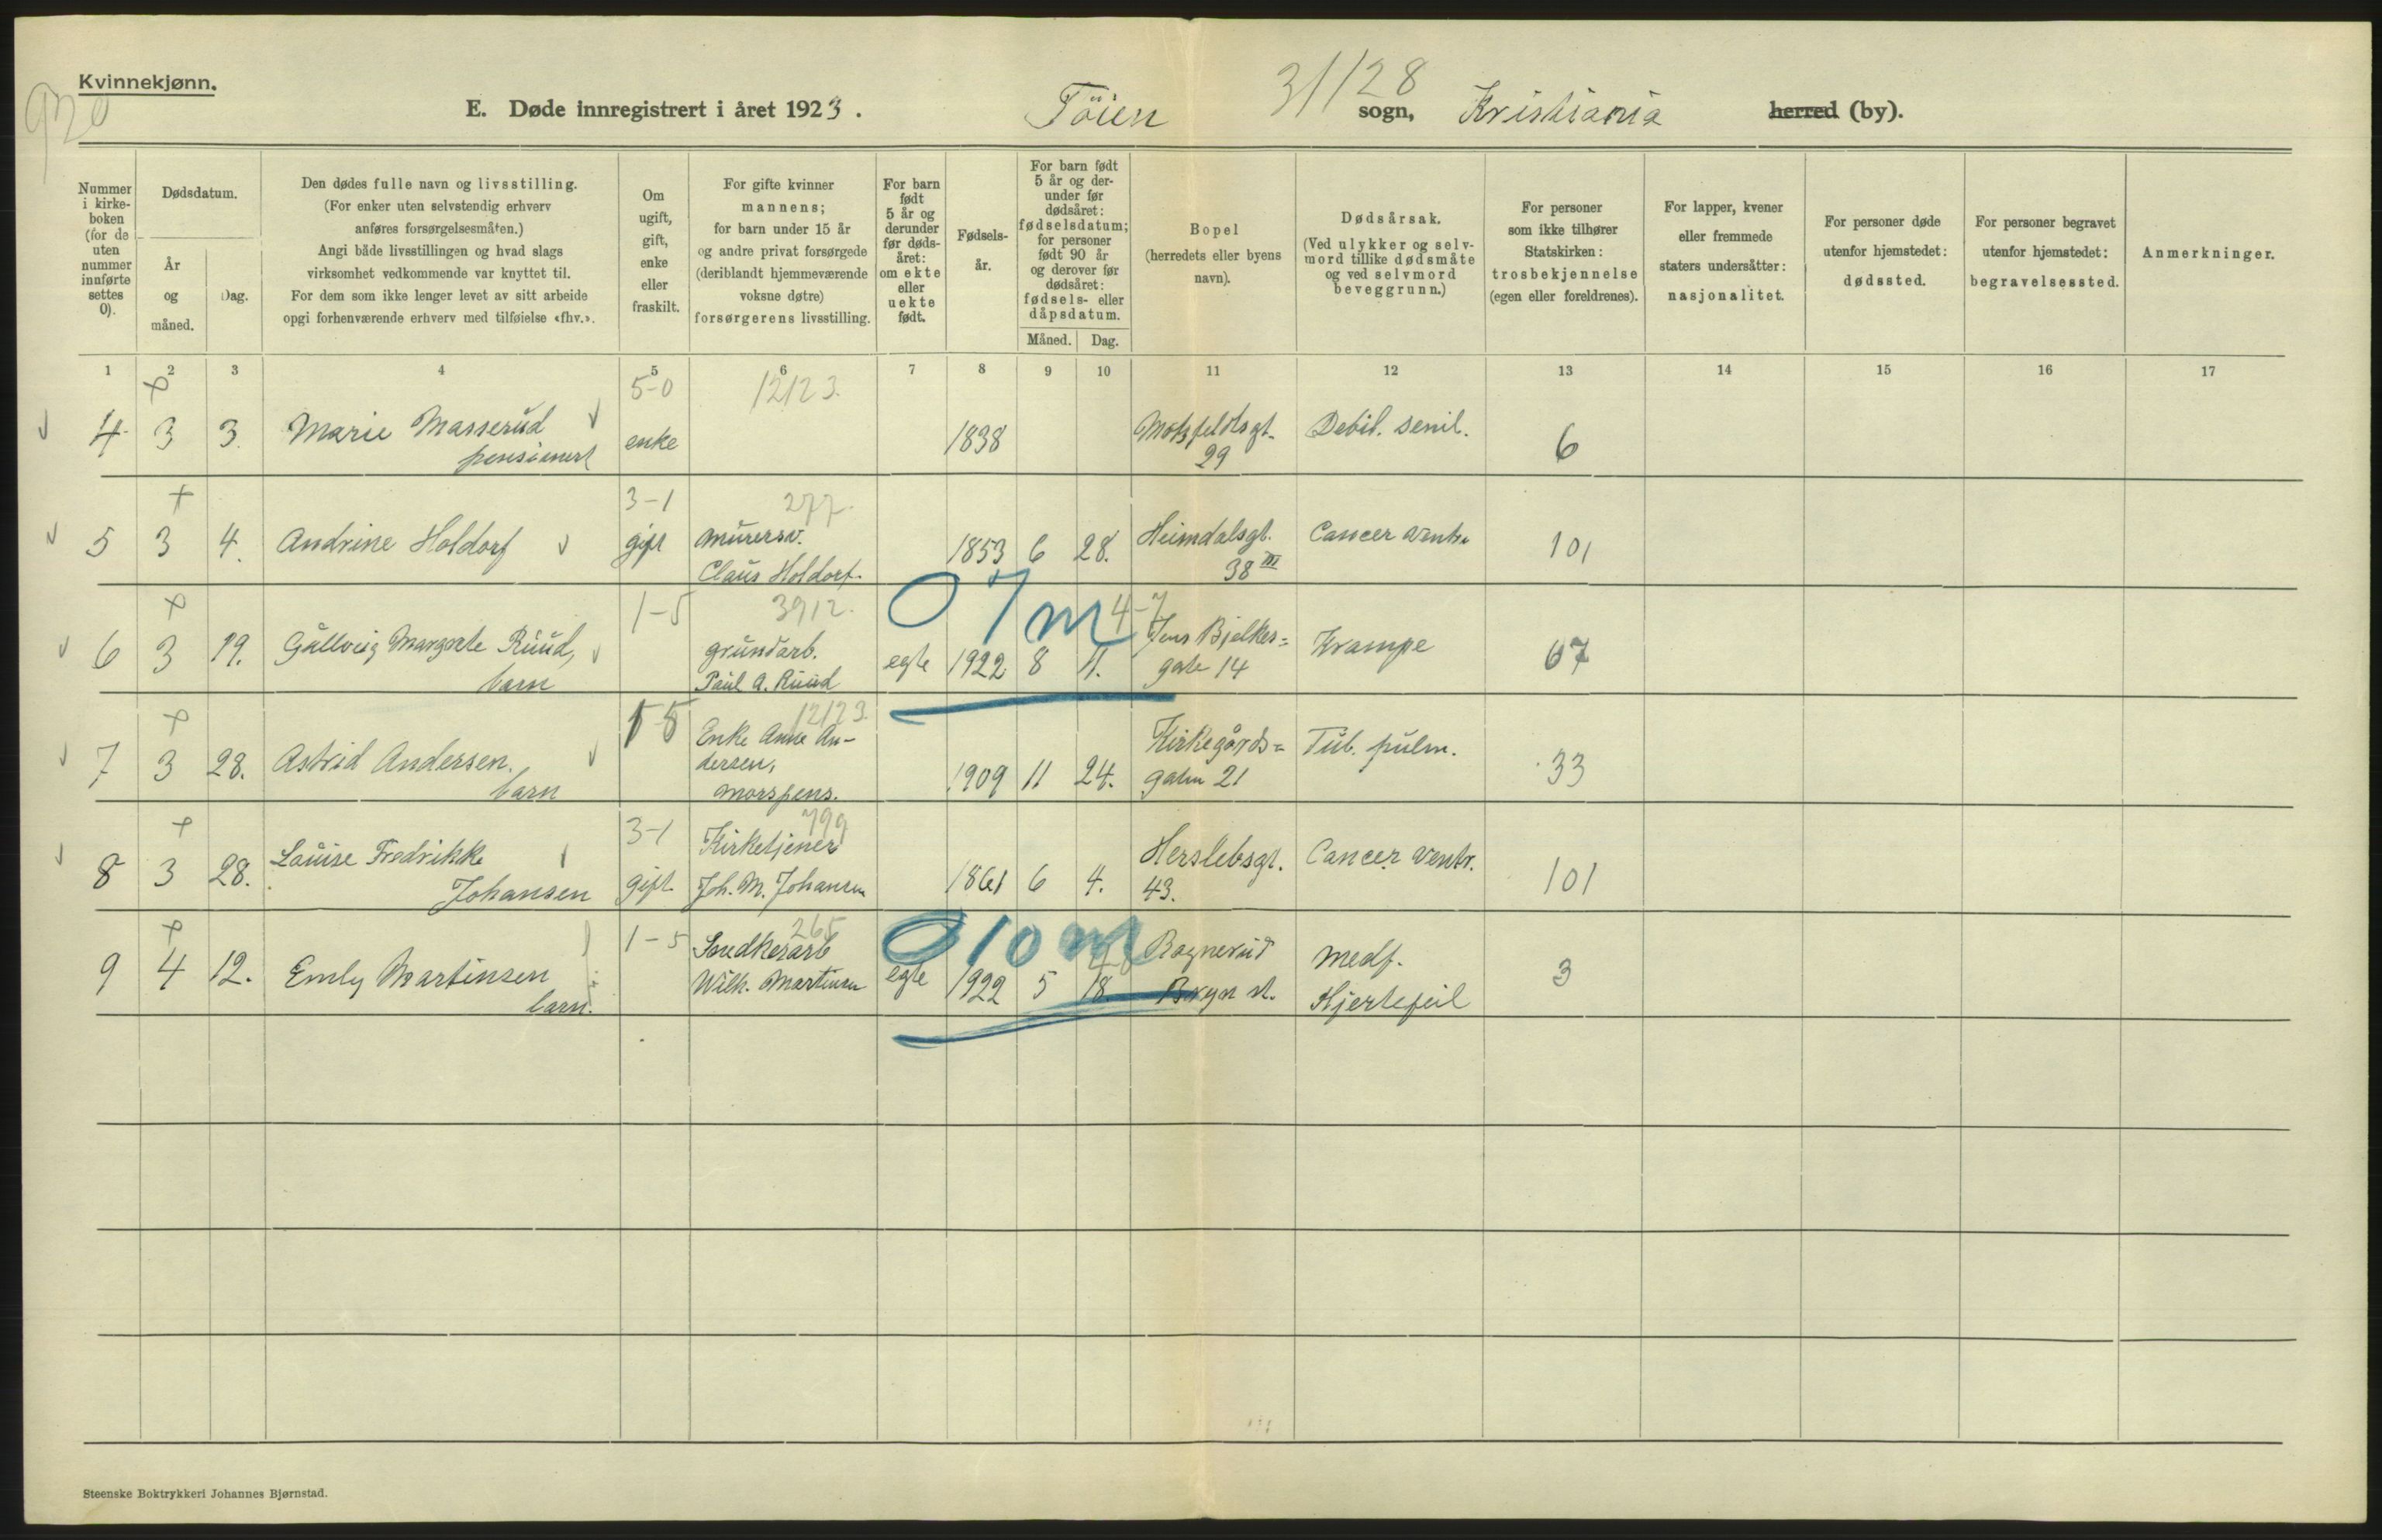 Kvinnekjønn.
920
E. Døde innregistrert i året 1923. Töien sogn, Kristiania herred (by).
31/28
Nummer i kirkeboken (for de uten nummer innførte settes 0).
Dødsdatum.
År og måned.
Dag.
Den dødes fulle navn og livsstilling.
(For enker uten selvstendig erhverv
anføres forsørgelsesmåten.)
Angi både livsstillingen og hvad slags
virksomhet vedkommende var knyttet til.
For dem som ikke lenger levet av sitt arbeide
opgi forhenværende erhverv med tilføielse «fhv.».
Om
ugift,
gift,
enke
eller
fraskilt.
For gifte kvinner
mannens;
for barn under 15 år
og andre privat forsørgede
(deriblandt hjemmeværende
voksne døtre)
forsørgerens livsstilling.
For barn
født
5 år og
derunder
før døds-
året:
om ekte
eller
uekte
født.
Fødsels-
år.
For barn født
5 år og der-
under før
dødsåret:
fødselsdatum;
for personer
født 90 år
og derover før
dødsåret:
fødsels- eller
dåpsdatum.
Måned. Dag.
Bopel
(herredets eller byens
navn).
Dødsårsak.
(Ved ulykker og selv-
mord tillike dødsmåte
og ved selvmord
beveggrunn.)
For personer
som ikke tilhører
Statskirken:
trosbekjennelse
(egen eller foreldrenes).
For lapper, kvener
eller fremmede
staters undersåtter:
nasjonalitet.
For personer døde
utenfor hjemstedet:
dødssted.
For personer begravet
utenfor hjemstedet:
begravelsessted.
Anmerkninger.
1 2 3 4 5 6 7 8 9 10 11 12 13 14 15 16 17
5-0 12123.
4 3 3. Marie Masserud enke 1838 Motzfeldtsgt. Debil. senil. 6
pensionert 29
3-1 277.
5 3 4. Andrine Holdorf gift Murersv. 1853 6 28. Heimdalsgt. Cancer ventr. 101
Claus Holdorf. 38 III
1-5 3912. 07m 4-7
6 3 19. Gullveig Margrete Ruud, grundarb. egte 1922 8 11. Jens Bjelkes= Krampe 67
barn Paul A. Ruud gate 14
1-5 12123
7 3 28. Astrid Andersen. Enke Anne An- 1909 11 24. Kirkegårds= Tub. pulm. 33
barn dersen, gaten 21
morspens.
3-1 799
8 3 28. Louise Fredrikke Kirketjener Herslebsgt. Cancer ventr. 101
Johansen gift. Joh. M. Johansen 1861 6 4. 43.
1-5 265 010m
9 4 12. Emly Martinsen Snedkerarb egte 1922 5 18. Rognerud Medf. 3
barn. Wilh. Martinsen Bryn st. Hjertefeil
Steenske Boktrykkeri Johannes Bjørnstad.